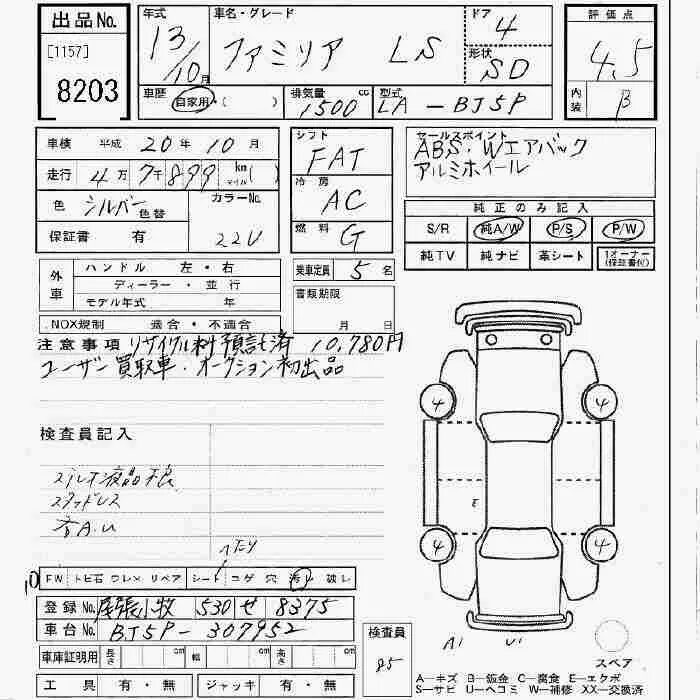 出品No. 年式 車名・グレード ドア 評価点
[1157] 13/10月 ファミリア LS 4 4.5
8203 形状 SD
車歴 自家用・( ) 排気量 1500 cc 型式 LA-BJ5P 内装 B
車検 平成 20年 10月 シフト FAT セールスポイント
ABS・Wエアバック
走行 4万 7千 899 km マイル( ) アルミホイール
冷房 AC
色 シルバー 色替 カラーNo. 22V 純正のみ記入
S/R 純A/W P/S P/W
保証書 有 燃料 G
純TV 純ナビ 革シート 1オーナー(保証書付)
外車 ハンドル 左・右 乗車定員 5名
ディーラー・並行 書類期限
モデル年式 年
NOX規制 適合・不適合 月 日
注意事項 リサイクル料預託済 10,780円
ユーザー買取車・オークション初出品
4 4
検査員記入
液晶不良
E
スタッドレス
4 4
FW トビ石 ワレ× リペア シート コゲ 穴 汚レ 破レ
登録No. 尾張小牧 530 せ 8375
車台No. BJ5P-307952
検査員 85
A1 U1
スペア
車庫証明用 長さ cm 幅 cm 高さ cm
A―キズ B―鈑金 C―腐食 E―エクボ
工具 有・無 ジャッキ 有・無
S―サビ U―ヘコミ W―補修 XX―交換済